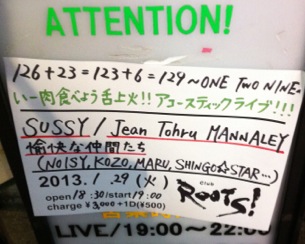 ATTENTION!
126+23=123+6=129~ONE TWO NINE~
いー肉食べよう舌上火!! アコースティックライブ!!!
SUSSY / Jean Tohru MANNALEY
愉快な仲間たち
(NOISY, KOZO, MARU, SHINGO☆STAR…)
2013. 1/29 (火) club ROOTS!
open 18:30/start 19:00
charge ¥3,000+1D(¥500)
LIVE/19:00~22:00